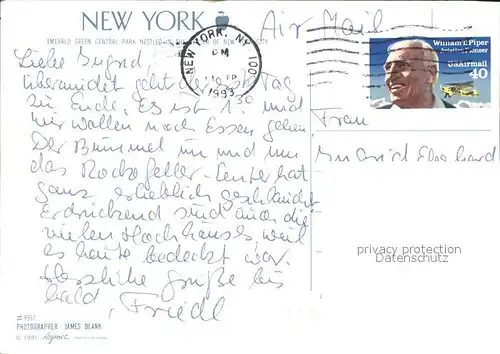 NEW YORK
Air Mail
EMERALD GREEN CENTRAL PARK NESTLED IN THE OF NEW
NEW YORK, NY 100
PM
1993
William T. Piper
Aviation Pioneer
USAirmail
40
Liebe Sigrid
übermüdet geht der Tag
zu Ende. Es ist 1. und
wir wollen noch Essen gehen
Der Bummel um und um
das Rockefeller-Center hat
ganz erheblich geschlaucht
Erdrückend sind auch die
vielen Hochhäuser, weil
es heute bedeckt war.
Herzliche Grüße bis
bald, Friedl
Frau
privacy protection
Datenschutz
PHOTOGRAPHER JAMES BLANK